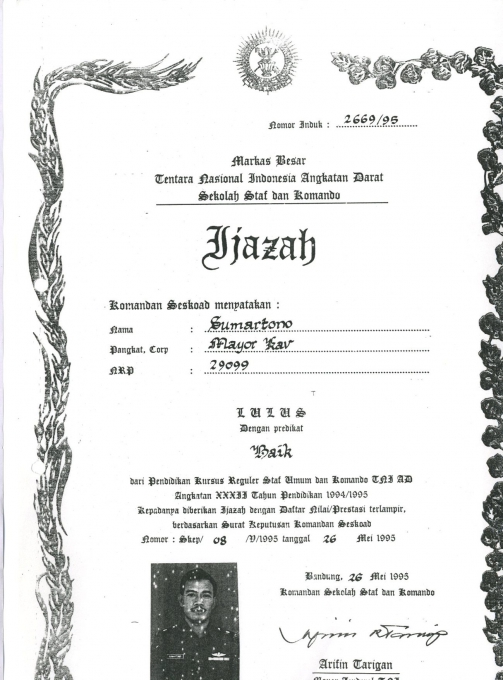 Nomor Induk : 2669/95
Markas Besar
Tentara Nasional Indonesia Angkatan Darat
Sekolah Staf dan Komando
Ijazah
Komandan Seskoad menyatakan :
Nama : Sumartono
Pangkat, Corp : Mayor Kav
NRP : 29099
LULUS
Dengan predikat
Baik
dari Pendidikan Kursus Reguler Staf Umum dan Komando TNI AD
Angkatan XXXII Tahun Pendidikan 1994/1995
Kepadanya diberikan Ijazah dengan Daftar Nilai/Prestasi terlampir,
berdasarkan Surat Keputusan Komandan Seskoad
Nomor : Skep/ 08 /V/1995 tanggal 26 Mei 1995
Bandung, 26 Mei 1995
Komandan Sekolah Staf dan Komando
Arifin Tarigan